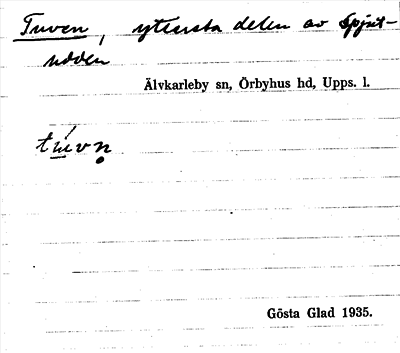 Tuven, yttersta delen av Spjut-
udden
Älvkarleby sn, Örbyhus hd, Upps. l.
Gösta Glad 1935.